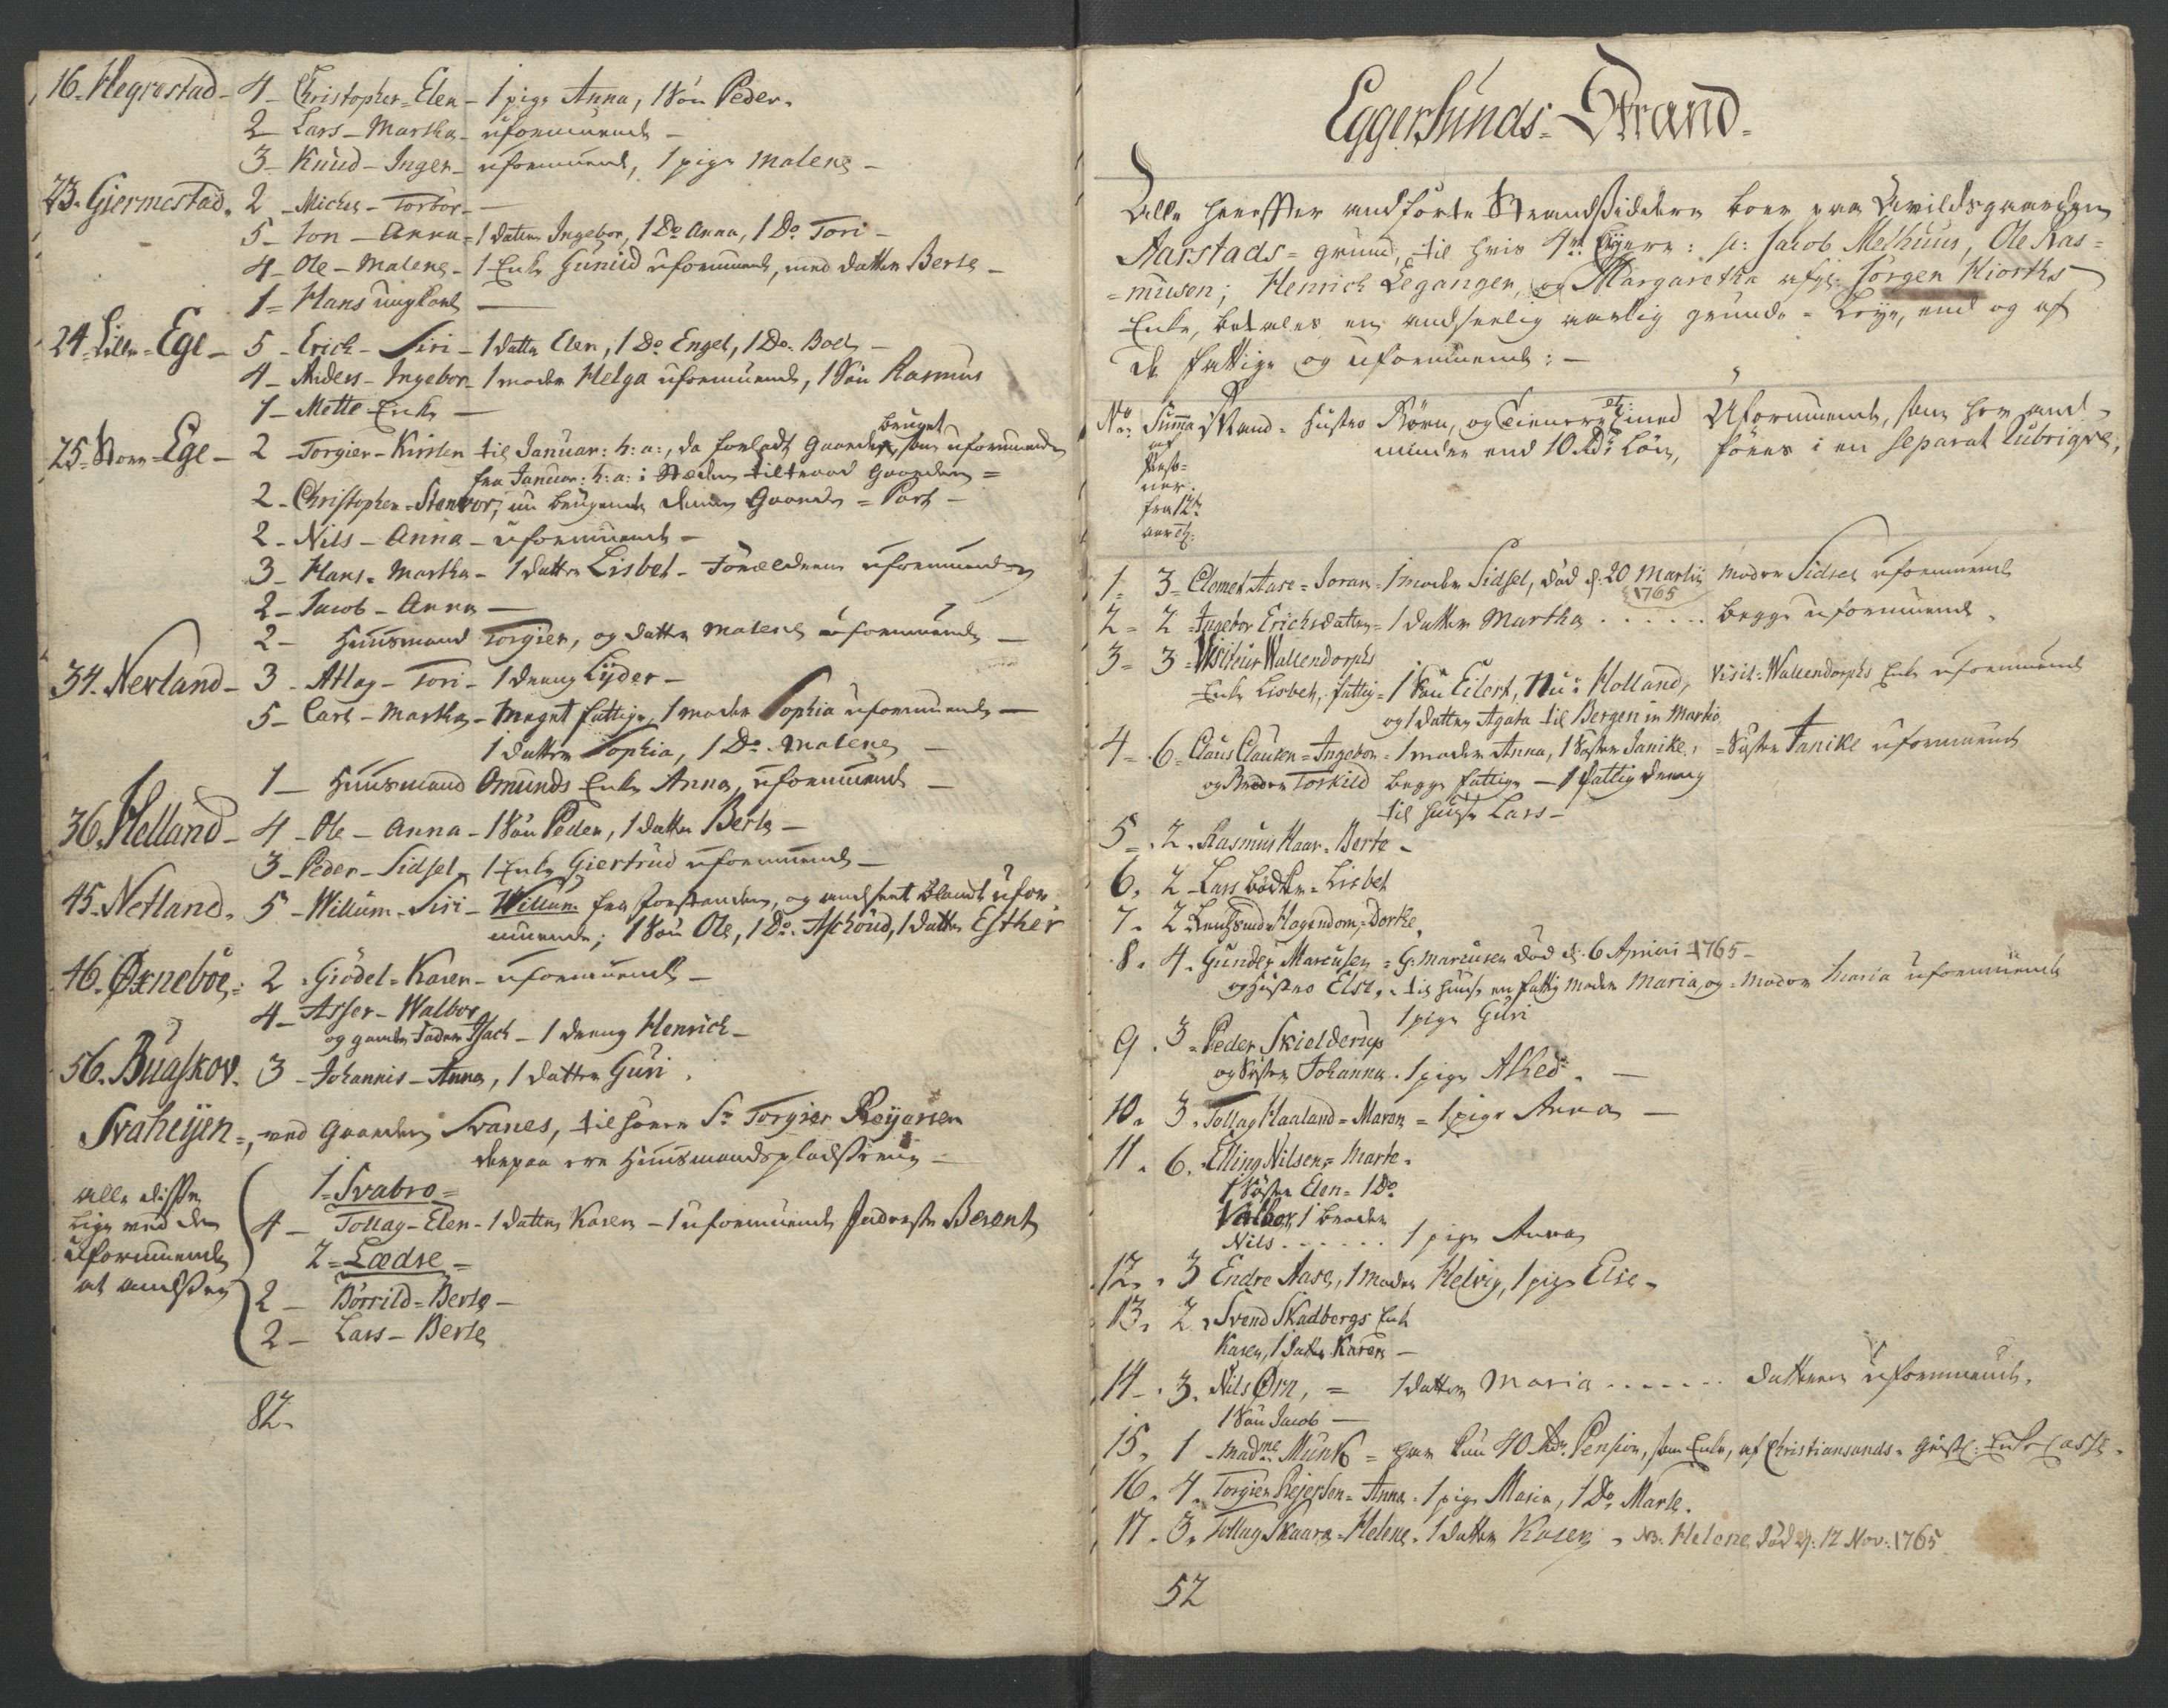 16. Hegrestad - 4 - Christopher = Elen - 1 pige Anna, 1 Søn Peder.
2 - Lars - Martha - uformuende -
3 - Knud - Inger - uformuend, 1 pige Malene -
23. Giermestad. 2 - Michel - Torbor -
5 - Jon - Anna = 1 datter Ingebor, 1 Do Anna, 1 Do Tori -
4 - Ole - Malene - 1 Enke Gunild uformuend, med datter Berte -
1 - Hans ungkarl -
24. Lille = Ege - 5 - Erich - Siri - 1 datter Elen, 1 Do Engel, 1 Do Boel -
4 - Anders - Ingebor - 1 moder Helga uformuende, 1 Søn Rasmus
1 - Mette Enke -
25. Store = Ege - 2 - Torgier - Kirsten til Januar: h: a:, da forlodt Gaardens bruget som uformuende
fra Januar: h: a: i Steden tiltraad Gaarden =
2 - Christopher = Stenvor, nu brugende denne Gaards = Part -
2 - Nils - Anna - uformuende -
3 - Hans - Martha - 1 datter Lisbet - Forældrene uformuende
2 - Jacob - Anna -
2 - Huusmand Torgier, og datter Malene uformuende -
34. Nerland - 3 - Atlag - Tori - 1 dreng Lyder -
5 - Carl - Martha - meget fattige, 1 moder Sophia uformuende -
1 datter Sophia, 1 Do Malene -
1 - Huusmand Omunds Enke Anna, uformuende -
36. Helland - 4 - Ole - Anna - 1 Søn Peder, 1 datter Berte -
3 - Peder - Sidsel - 1 Enke Giertrud uformuende -
45. Netland. 5 - Willum - Siri - Willum fra Forstanden, og andseet blandt ufor-
muende; 1 Søn Ole, 1 Do Aschoud, 1 datter Esther
46. Øxneboe = 2 - Giødel = Karen - uformuende -
4 - Asser - Walbor
og gamle Fader Isach - 1 dreng Henrich -
56. Buaskov. 3 - Johannis - Anna, 1 datter Guri.
Svaheyen =, ved Gaarden Svanes, tilhører Sr Torgier Reyersen
derpaa ere Huusmandspladserne -
alle disse
lige ved de
uformuende
at andsee
1 = Svabro =
4 - Tollag - Elen - 1 datter Karen - 1 uformuende Inderste Berent
2 = Lædre =
2 - Børrild = Berte -
2 - Lars - Berte
82.
Eggersunds = Strand.
Alle hereffter andførte Strandsiddere boer paa Qvildsgaarden
Aarstads = grund, til hvis 4re Eyere: Sr: Jacob Melhuus, Ole Ras =
= musen; Henrich Legangen, og Margaretha afg: Jørgen Kiorths
Enke, betales en andseelig aarlig grunde = Leye, end og af
de fattige og uformuende: -
No: Summa af Perso= ner. fra 12te aar etc:
Mand = Hustro
Børn, og Tienere etc: med
minder end 10 Rdr Løn,
Uformuende, som her and =
føres i en separat Rubrique;
1 = 3 = Clemet Aase = Joran = 1 moder Sidsel, død d: 20 Martij 1765
moder Sidsel uformuende
2 = 2 = Ingebor Erichsdatter = 1 datter Martha . . . . . . begge uformuende.
3 = 3 = Visiteur Wallendorphs
Enke Lisbeth, fattig = 1 Søn Eilert, nu i Holland,
Visit: Wallendorphs Enke uformuende
og 1 datter Agata til Bergen in Martio
4 = 6 = Claus Clausen = Ingebor = 1 moder Anna, 1 Søster Janike, = Søster Janike uformuende
og Broder Torkild begge fattige - 1 fattig dreng
til huuse Lars -
5 = 2. Rasmus Haar = Berte -
6. 2 - Lars Bødker = Lisbet
7. 2 Hagendorn, Dorthe,
8. 4. Gunder Marcusen = G: Marcusen død d: 6 Aprili 1765 -
og Hustro Else, - til huuse en fattig moder Maria, og = moder Maria uformuende
1 pige Guri
9. 3 = Peder Skielderup
og Søster Johanna. 1 pige Alhed. -
10. 3. Tollag Haaland = Maren = 1 pige Anna -
11. 6. Elling Nilsen = Marte.
1 Søster Elen = 1 Do
Valbor, 1 broder
Nils . . . . . . 1 pige Anna
12. . 3 Endre Aase, 1 moder Helvig, 1 pige Else -
13. 2. Svend Skadbergs Enke
Karen, 1 datter Karen -
14 - . 3. Nils Ørn, = 1 datter Maria . . . . . . . datteren uformuende.
1 Søn Jacob -
15. 1 - Madme Munk = har kun 40 Rdr Pension, som Enke, af Christiansands = Geistl: Enke Casse -
16. 4. Torgier Rejersen = Anna. 1 pige Maria, 1 Do Marte.
17. 3. Tollag Skaara = Helene. 1 datter Karen. NB. Helene død d: 12 Nov: 1765
52